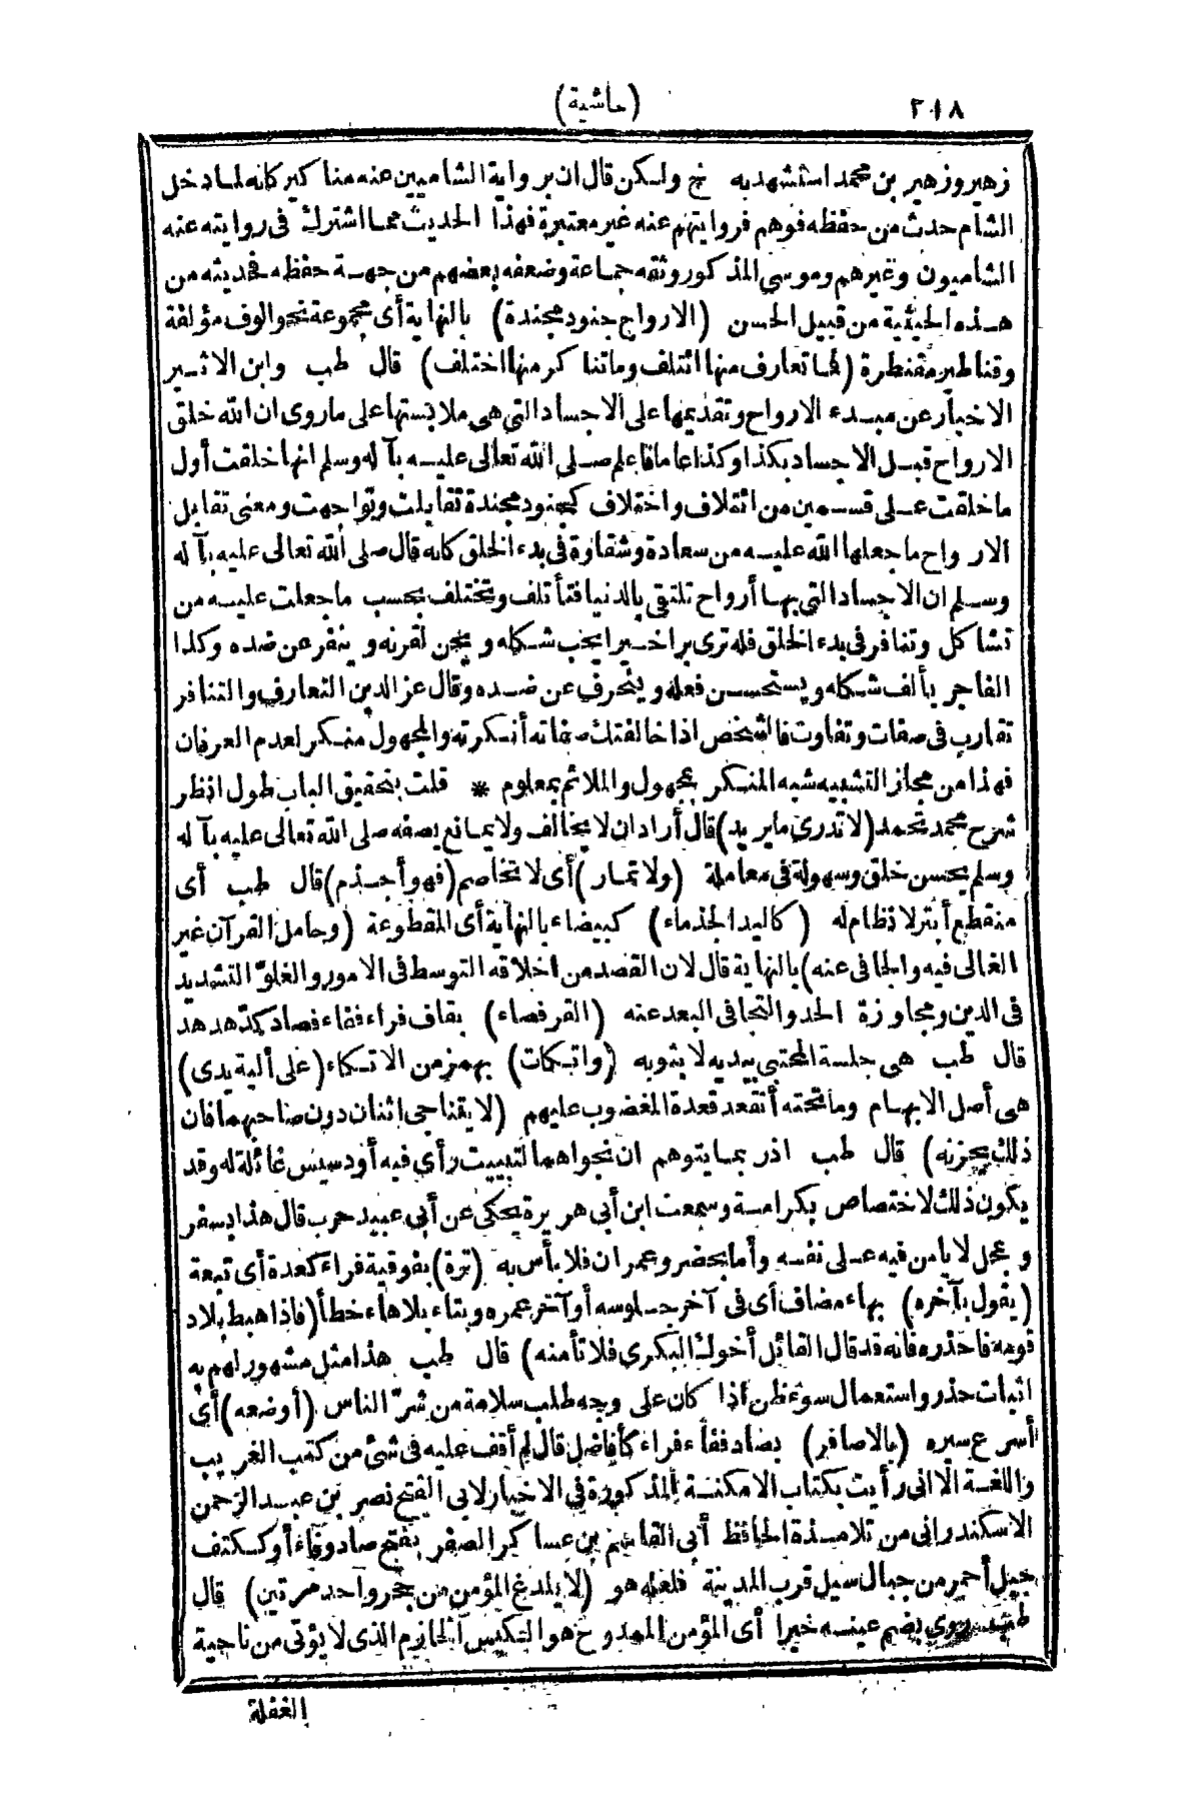 ٢١٨
(حاشية)
زهير وزهير بن محمد استشهد به خ ولكن قال ان برواية الشاميين عنه مناكير كانه لما دخل
الشام حدث من حفظه فوهم فروايتهم عنه غير معتبرة فهذا الحديث مما اشترك فى روايته عنه
الشاميون وغيرهم وموسى المذكور وثقه جماعة وضعفه بعضهم من جهة حفظه فحديثه من
هذه الحيثية من قبيل الحسن (الارواح جنود مجندة) بالنهاية أى مجموعة نحو الوف مؤلفة
وقناطير مقنطرة (فما تعارف منها ائتلف وما تناكر منها اختلف) قال طب وابن الاثير
الاخبار عن مبدء الارواح وتقديمها على الاجساد التى هى ملابستها على ما روى ان الله خلق
الارواح قبل الاجساد بكذا وكذا عاما فاعلم صلى الله تعالى عليه بآله وسلم انها خلقت أول
ما خلقت على قسمين من ائتلاف واختلاف كجنود مجندة تقابلت وتواجهت ومعنى تقابل
الارواح ما جعلها الله عليه من سعادة وشقاوة فى بدء الخلق كانه قال صلى الله تعالى عليه بآله
وسلم ان الاجساد التى بها أرواح تلتقى بالدنيا فتأتلف وتختلف بحسب ما جعلت عليه من
تشاكل وتنافر فى بدء الخلق فله ترى برا خيرا يحب شكله ويحن لقرنه وينفر عن ضده وكذا
الفاجر يألف شكله ويستحسن فعله وينحرف عن ضده وقال عز الدين التعارف والتنافر
تقارب فى صفات وتفاوت فالشخص اذا خالفتك صفاته أنكرته والمجهول منكر لعدم العرفان
فهذا من مجاز التشبيه شبه المنكر بمجهول والملائم بمعلوم * قلت بتحقيق الباب طول انظر
شرح محمد تحمد (لا تدرى ما يريد) قال أراد ان لا يخالف ولا يمانع يصفه صلى الله تعالى عليه بآله
وسلم بحسن خلق وسهولة فى معاملة (ولا تمار) أى لا تخاصم (فهو أجذم) قال طب أى
منقطع أبتر لا نظام له (كاليد الجذماء) كبيضاء بالنهاية أى المقطوعة (وحامل القرآن غير
الغالى فيه والجافى عنه) بالنهاية قال لان القصد من اخلاقه التوسط فى الامور والغلو التشديد
فى الدين ومجاوزة الحد والتجافى البعد عنه (القرفصاء) بقاف فراء ففاء فصاد كذهدهد
قال طب هى جلسة المحتبى بيديه لا بثوبه (واتكات) بهمز من الاتكاء (على ألية يدى)
هى أصل الابهام وما تحته أتقعد قعدة المغضوب عليهم (لا يتناجى اثنان دون صاحبهما فان
ذلك يحزنه) قال طب اذ ربما يتوهم ان نجواهما لتبييت رأى فيه أو دسيس غائلة له وقد
يكون ذلك لاختصاص بكرامة وسمعت ابن أبى هريرة يحكى عن أبى عبيد حرب قال هذا بسفر
ومحل لا يامن فيه على نفسه وأما بحضر وعمران فلا بأس به (ترة) بفوقية فراء كعدة أى تبعة
(يقول بآخره) بهاء مضاف أى فى آخر جلوسه أو آخر عمره وبتاء بلا هاء خطأ (فاذا هبط بلاد
قومه فاحذره فانه قد قال القائل أخوك البكرى فلا تأمنه) قال طب هذا مثل مشهور لهم به
اثبات حذر واستعمال سوء ظن اذا كان على وجه طلب سلامة من شر الناس (أوضعه) أى
أسرع سيره (بالاصافر) بصاد ففاء فراء كأفاضل قال لم أقف عليه فى شئ من كتب الغريب
واللغة الا انى رأيت بكتاب الامكنة المذكورة فى الاخبار لابى الفتح نصر بن عبد الرحمن
الاسكندرانى من تلامذة الحافظ أبى القاسم بن عساكر الصفر بفتح صاد وفاء أو ككتف
جبل أحمر من جبال سيل قرب المدينة فلعله هو (لا يلدغ المؤمن من جحر واحد مرتين) قال
طب روى بضم عينه خبرا أى المؤمن الممدوح هو الكيس الحازم الذى لا يؤتى من ناحية
الغفلة